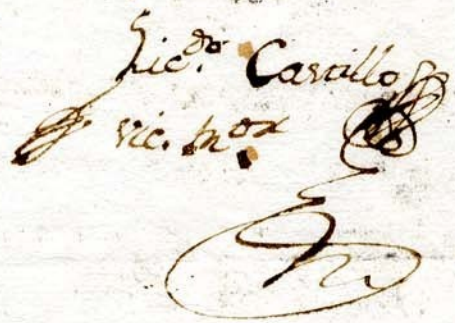 Licdo. Castillo
vic. mor